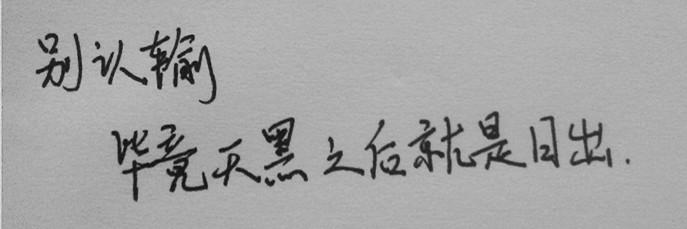 别认输
毕竟天黑之后就是日出.